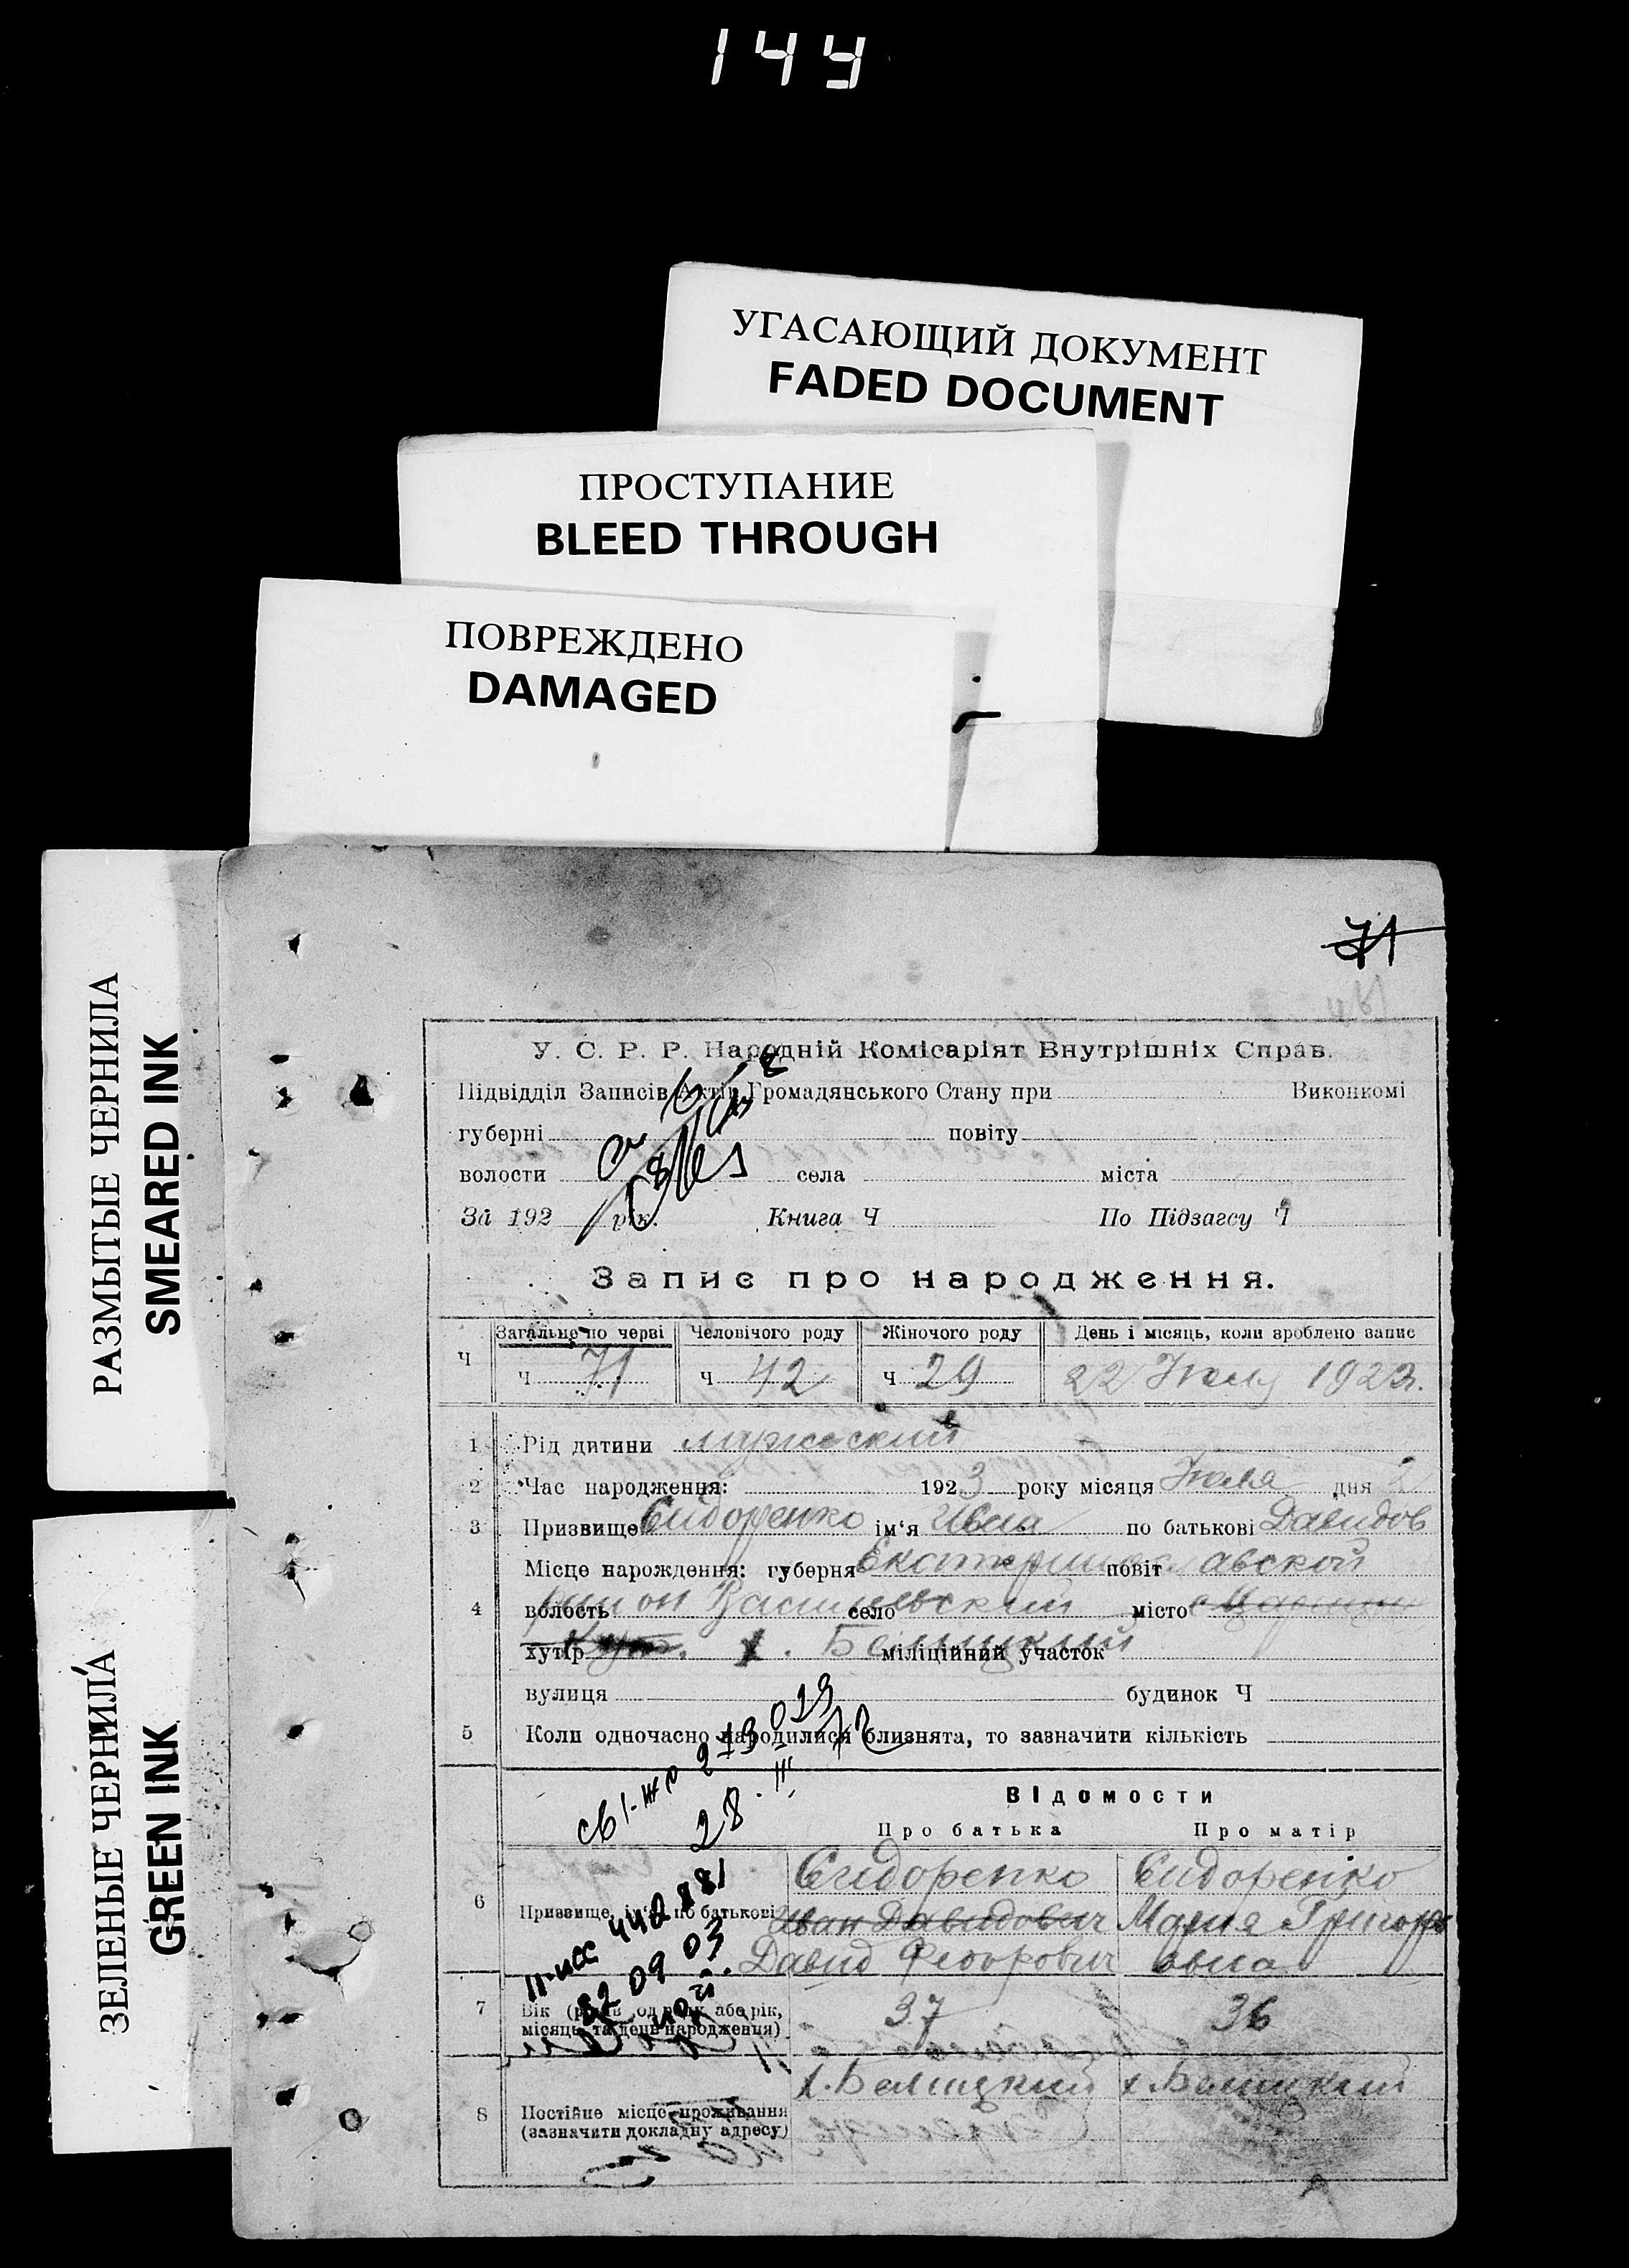 144
УГАСАЮЩИЙ ДОКУМЕНТ
FADED DOCUMENT
ПРОСТУПАНИЕ
BLEED THROUGH
ПОВРЕЖДЕНО
DAMAGED
РАЗМЫТЫЕ ЧЕРНИЛА
SMEARED INK
ЗЕЛЕНЫЕ ЧЕРНИЛА
GREEN INK
71
У. С. Р. Р. Народній Комісаріят Внутрішніх Справ.
Підвідділ Записів Актів Громадянського Стану при Виконкомі
губерні повіту
волости села міста
За 192 рік. Книга Ч По Підзагсу Ч
Запис про народження.
Загальне по черві Человічого роду Жіночого роду День і місяць, коли зроблено запис
Ч ч 71 ч 42 ч 29 22 Июля 1923г.
1 Рід дитини мужеский
2 Час народження: 1923 року місяця Июля дня 2
3 Призвище Сидоренко ім'я Иван по батькові Давидов
Місце народження: губерня Екатеринославской повіт
4 волость район Васильевский село місто
хутір х. Белицкий міліційний участок
вулиця будинок Ч
5 Коли одночасно народилися близнята, то зазначити кількість
Відомости
Про батька Про матір
28
6 Призвище, ім'я, по батькові Сидоренко Сидоренко
Иван Давидович Мария Григорь
Давид Феодорович евна
442881
09 03
7 Вік (років од роду або рік, 37 36
місяць та день народження)
х. Белицкий х. Белицкий
8 Постійне місце проживання
(зазначити докладну адресу)